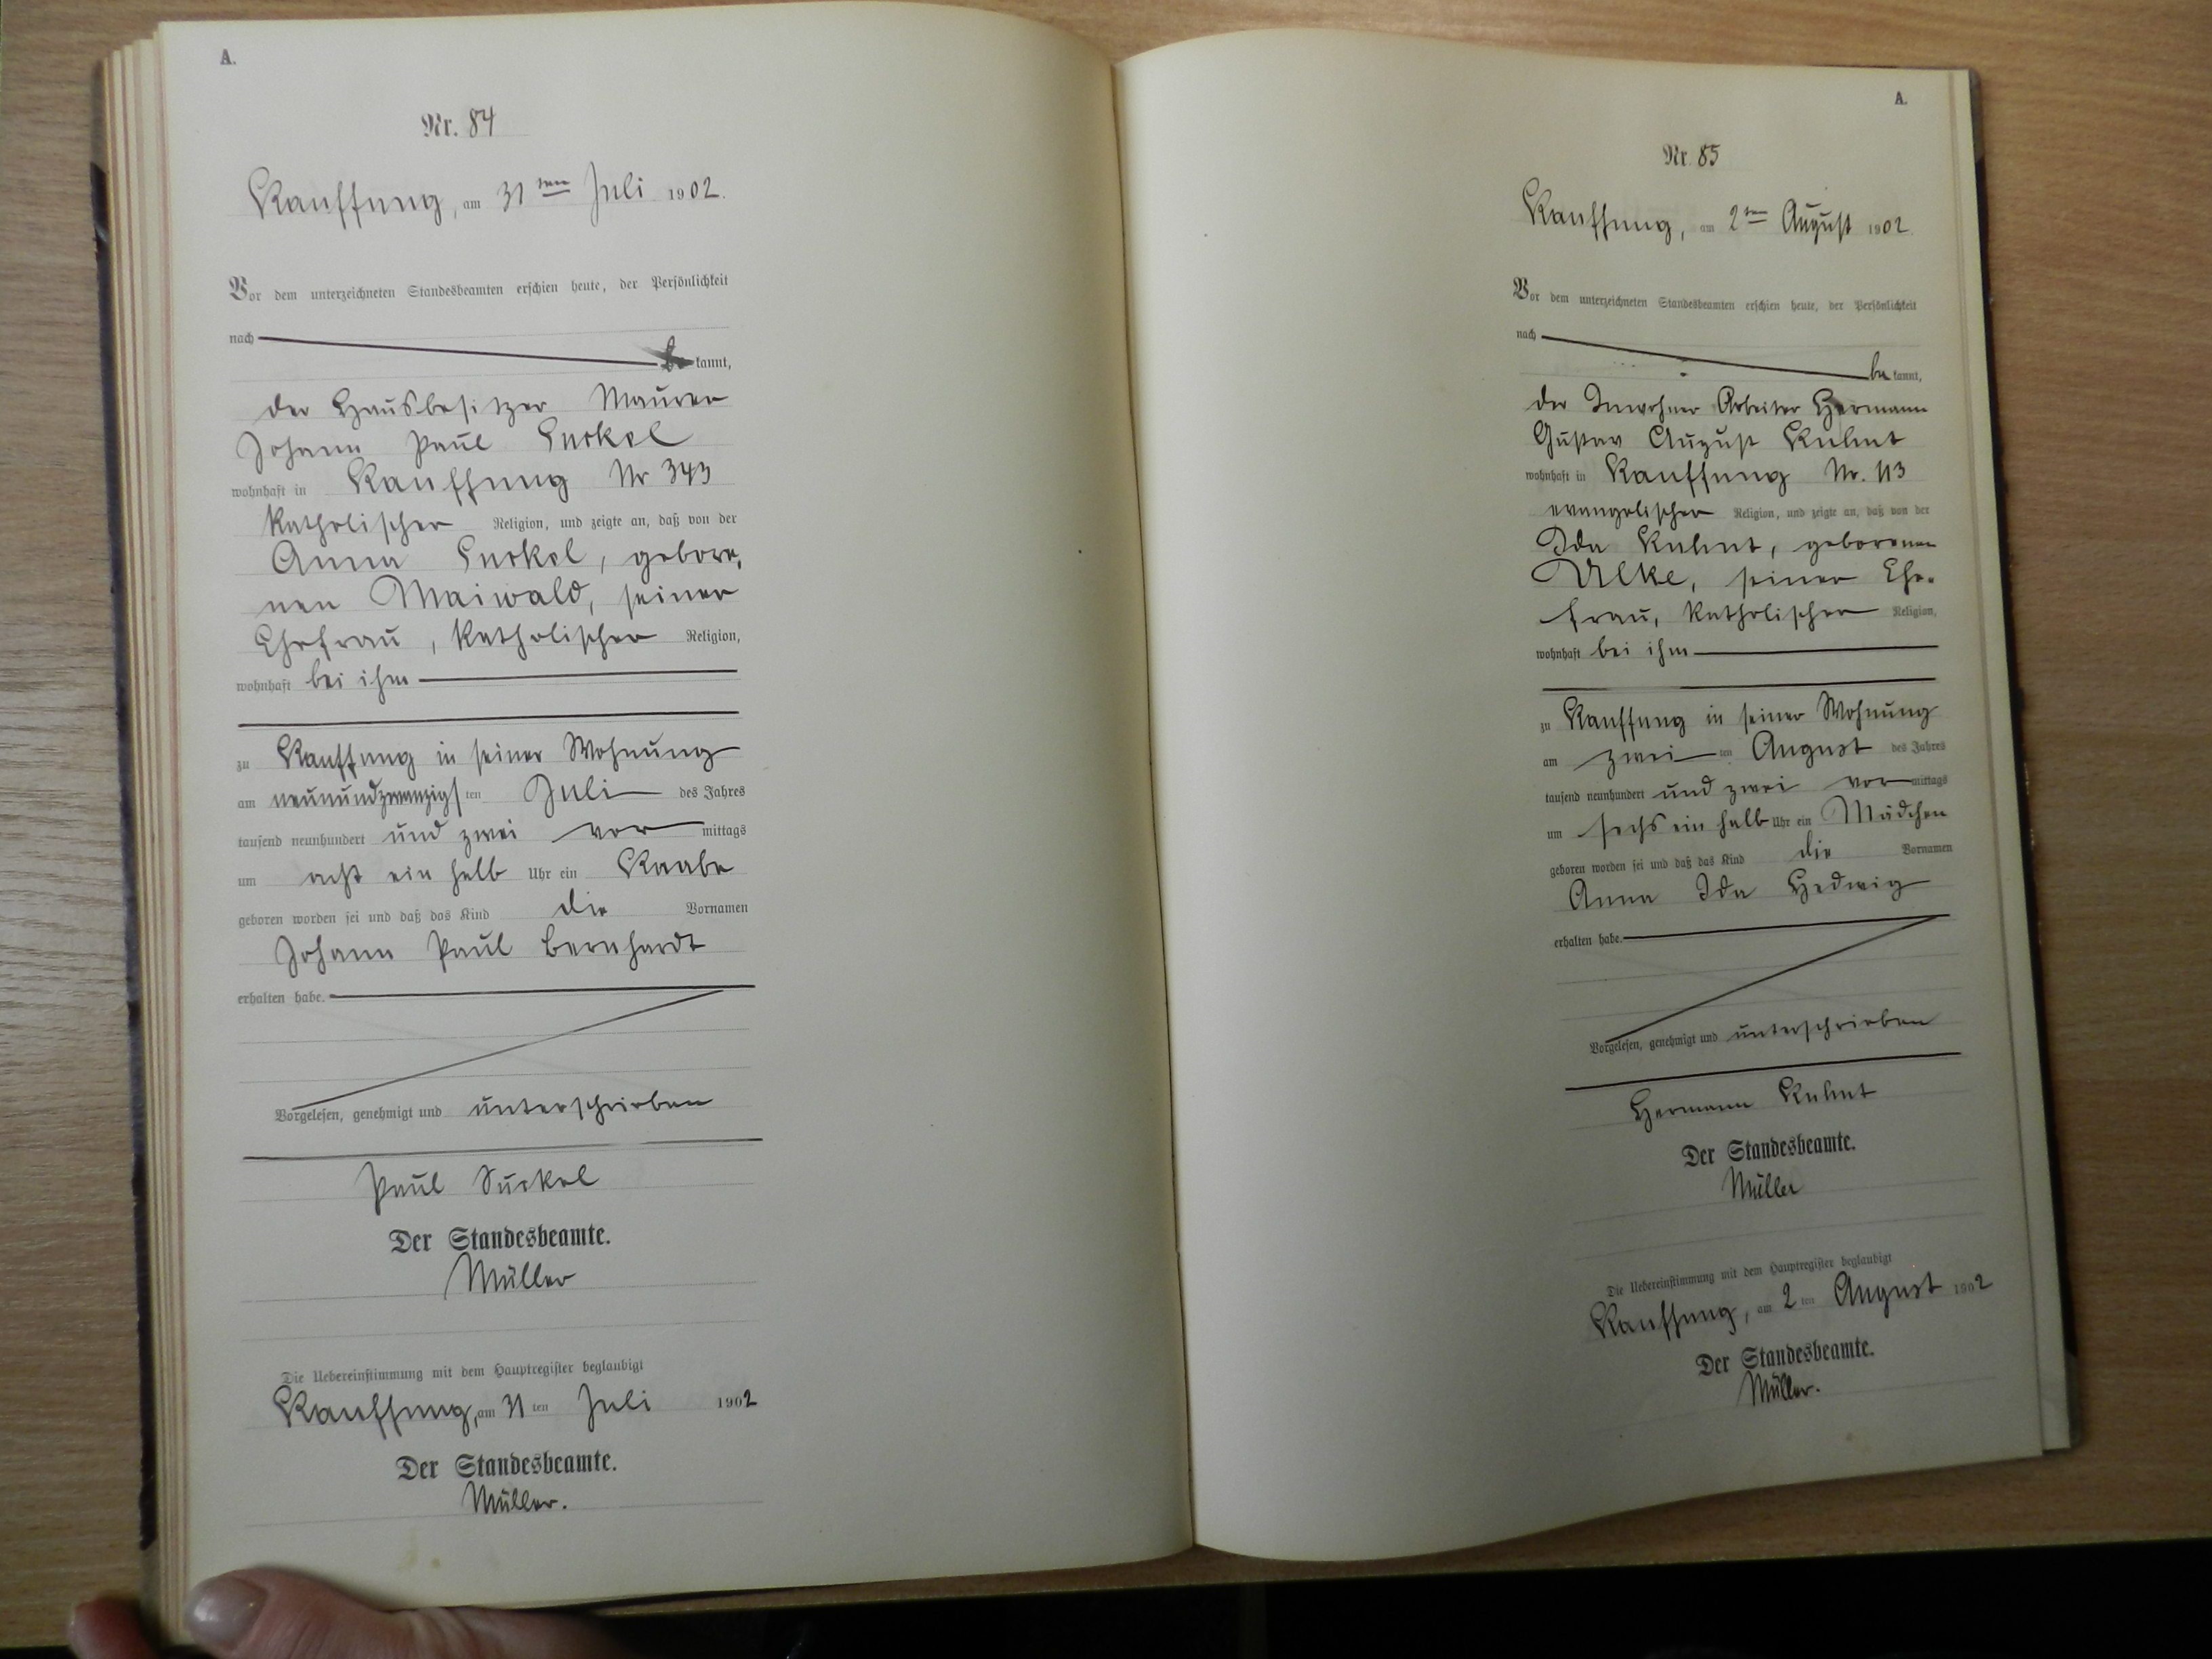 A.
Nr. 84
Kauffung, am 31ten Juli 1902.
Vor dem unterzeichneten Standesbeamten erschien heute, der Persönlichkeit
nach
be kannt,
der Hausbesitzer Maurer
Johann Paul Suckel
wohnhaft in Kauffung Nr 343
katholischer Religion, und zeigte an, daß von der
Anna Suckel, gebore,
nen Maiwald, seiner
Ehefrau, katholischer Religion,
wohnhaft bei ihm
zu Kauffung in seiner Wohnung
am neunundzwanzigsten Juli des Jahres
tausend neunhundert und zwei vor mittags
um acht ein halb Uhr ein Knabe
geboren worden sei und daß das Kind die Vornamen
Johann Paul Bernhardt
erhalten habe.
Vorgelesen, genehmigt und unterschrieben
Paul Suckel
Der Standesbeamte.
Müller
Die Uebereinstimmung mit dem Hauptregister beglaubigt
Kauffung, am 31 ten Juli 1902
Der Standesbeamte.
Müller.
A.
Nr. 85
Kauffung, am 2ten August 1902.
Vor dem unterzeichneten Standesbeamten erschien heute, der Persönlichkeit
nach
be kannt,
der Inwohner Arbeiter Hermann
Gustav August Kuhnt
wohnhaft in Kauffung Nr. 113
evangelischer Religion, und zeigte an, daß von der
Ida Kuhnt, geborenen
Ulke, seiner Ehe-
frau, katholischer Religion,
wohnhaft bei ihm
zu Kauffung in seiner Wohnung
am zwei ten August des Jahres
tausend neunhundert und zwei vor mittags
um sechs ein halb Uhr ein Mädchen
geboren worden sei und daß das Kind die Vornamen
Anna Ida Hedwig
erhalten habe.
Vorgelesen, genehmigt und unterschrieben
Hermann Kuhnt
Der Standesbeamte.
Müller
Die Uebereinstimmung mit dem Hauptregister beglaubigt
Kauffung, am 2 ten August 1902
Der Standesbeamte.
Müller.